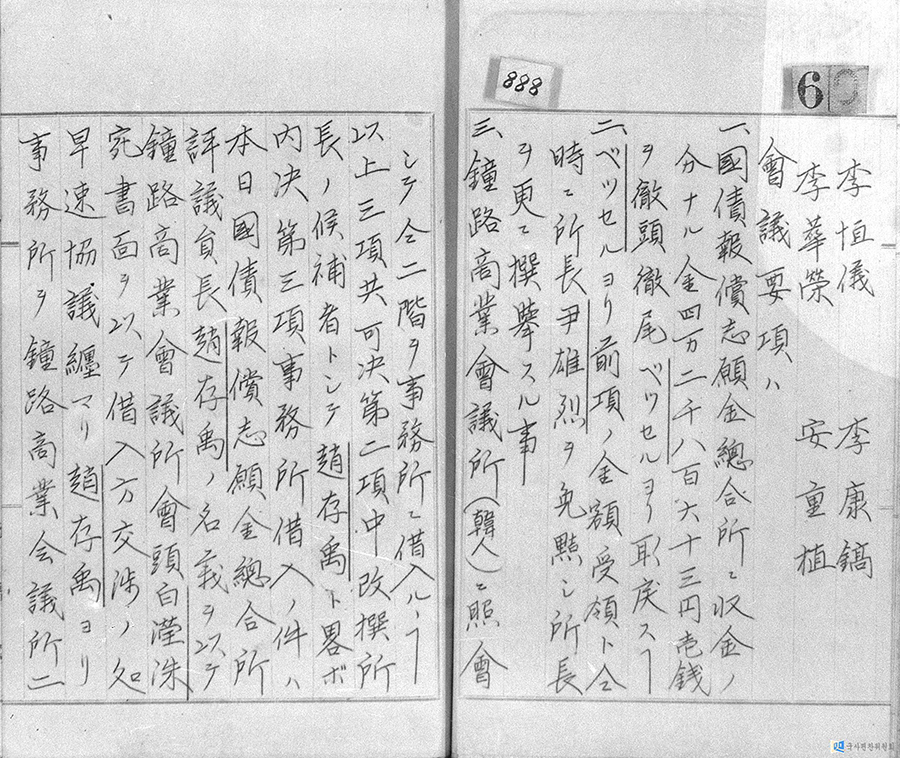 888
6
李恒儀 李康鎬
李華榮 安重植
會議要項ハ
一、國債報償志願金總合所ニ収金ノ
分ナル金四万二千八百六十三円壱銭
ヲ徹頭徹尾ベツセルヨリ取戻スヿ
二、ベツセルヨリ前項ノ金額受領ト仝
時ニ所長尹雄烈ヲ免黜シ所長
ヲ更ニ撰擧スル事
三、鐘路商業會議所(韓人)ニ照會
シテ仝二階ヲ事務所ニ借入ルヽヿ
以上三項共可決第二項中改撰所
長ノ候補者トシテ趙存禹ト畧ボ
内決第三項事務所借入ノ件ハ
本日國債報償志願金總合所
評議員長趙存禹ノ名義ヲ以テ
鐘路商業會議所會頭白瀅洙
宛書面ヲ以テ借入方交渉ノ処
早速協議纏マリ趙存禹ヨリ
事務所ヲ鐘路商業会議所ニ
국사편찬위원회